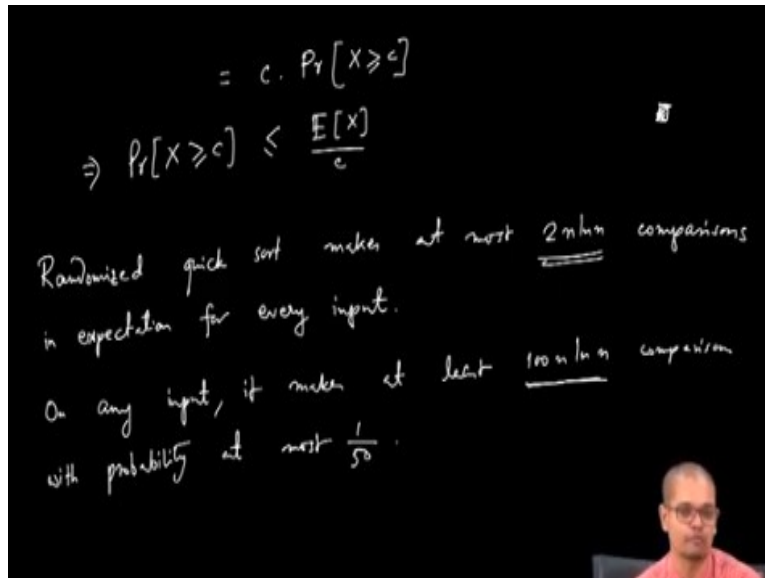 = c. Pr[X ⩾ c]
⇒ Pr[X ⩾ c] ≤ E[X]/c
Randomized quick sort makes at most 2 n ln n comparisons
in expectation for every input.
On any input, it makes at least 100 n ln n comparison
with probability at most 1/50.